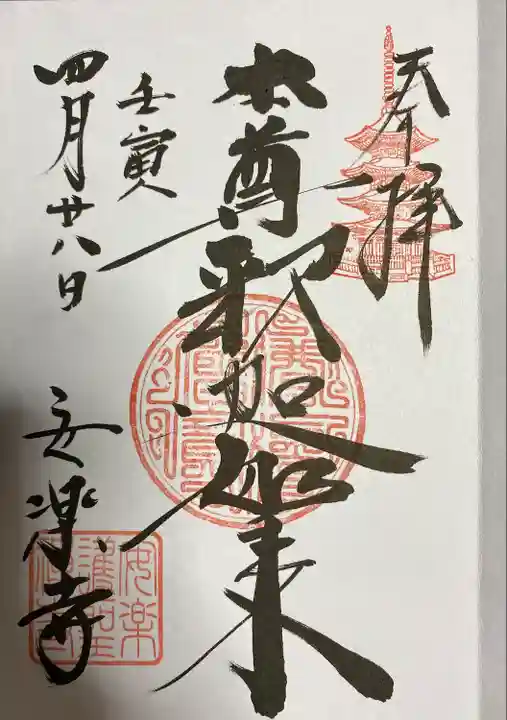 奉拝
本尊釈迦如来
壬寅
四月廿八日
安楽寺